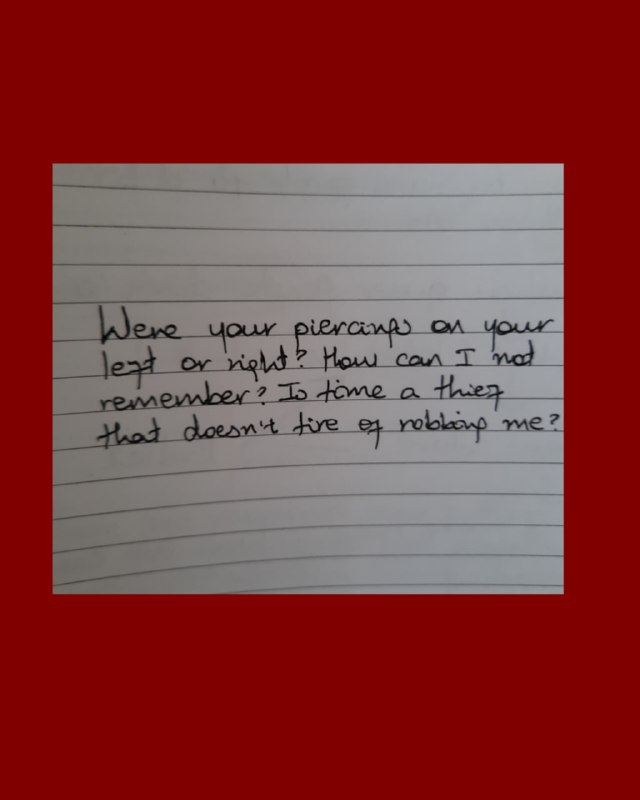 Were your piercings on your
left or right? How can I not
remember? Is time a thief
that doesn't tire of robbing me?